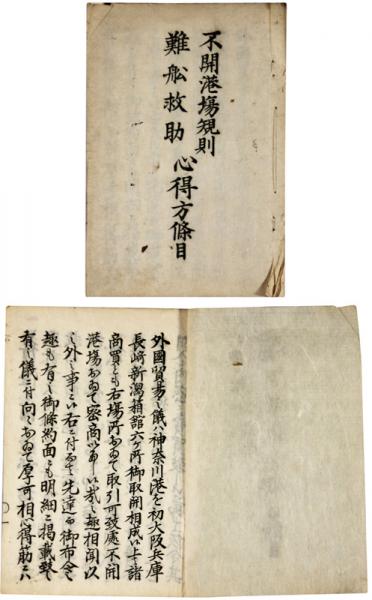 不開港場規則
難舩救助
心得方條目
外國貿易之儀ハ神奈川港を初大阪兵庫
長﨑新潟箱舘六ケ所御取開相成候上ハ諸
商買とも右場所おゐて取引可致處不開
港場おゐて密商いたし候哉之趣相聞以
之外之事ニ候右ニ付而者先達而御布令之
趣も有之御條約面ニも明細ニ掲載致し
有之儀ニ付向々おゐて厚可相心得筋ニハ